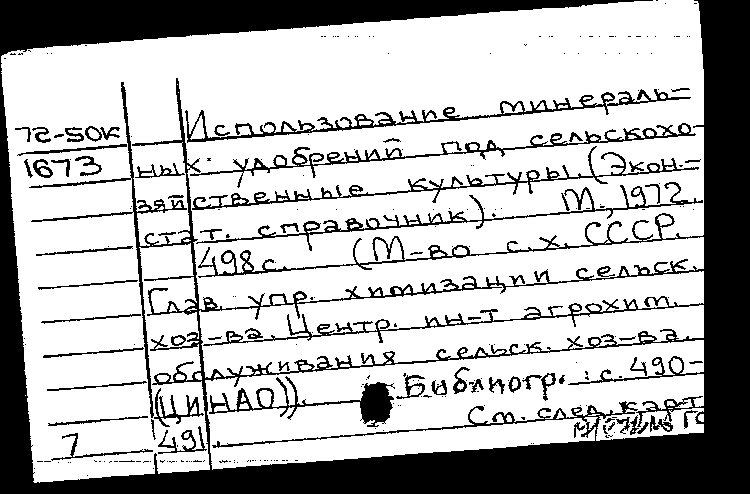 72-50К Использование минераль=
1673 ных удобрений под сельскохо-
зяйственные культуры. (Экон.=
стат. справочник). М., 1972.
498 с. (М-во с.х. СССР.
Глав. упр. химизации сельск.
хоз-ва. Центр. ин-т агрохим.
обслуживания сельск. хоз-ва.
(ЦИНАО)). Библиогр.: с. 490-
7 491. См. след. карт